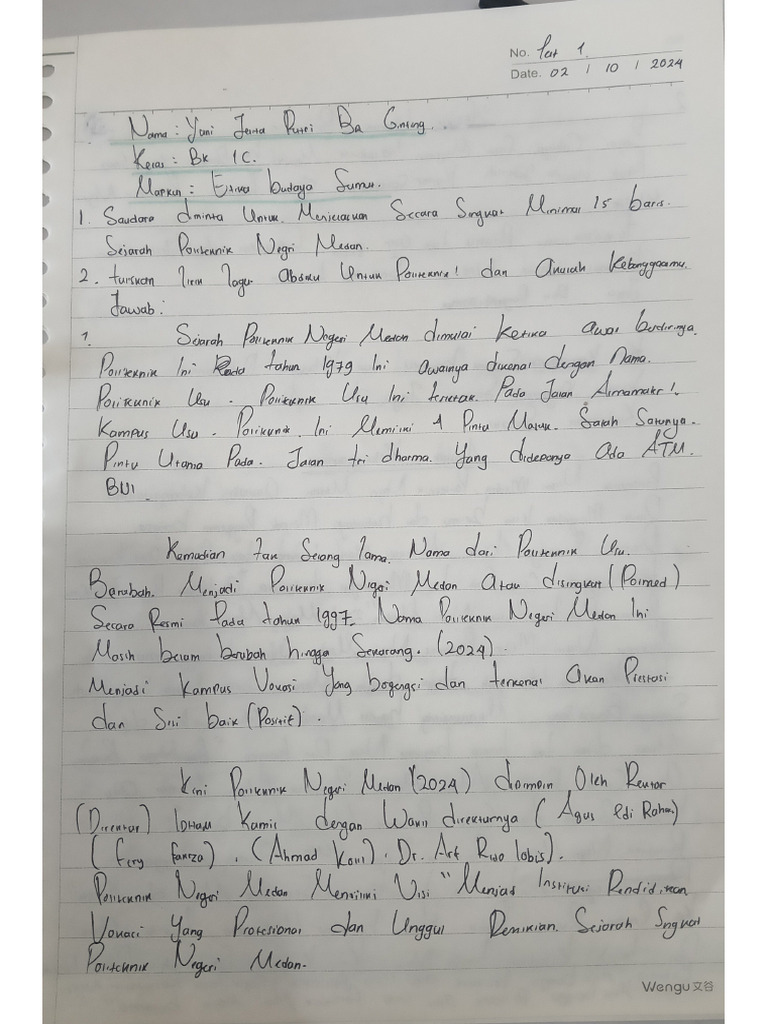 No. Per 1.
Date. 02 / 10 / 2024
Nama : Yuni Jesta Putri Ba Ginting.
Kelas : BK 1C.
Markun : Etika budaya Sumu.
1. Saudara diminta Untuk Menjelaskan Secara Singkat Minimal 15 baris.
Sejarah Politeknik Negri Medan.
2. tuliskan lirik lagu Abdiku Untuk Politeknik! dan Anulah Kebanggaanmu.
Jawab :
1. Sejarah Politeknik Negeri Medan dimulai Ketika awal berdirinya.
Politeknik Ini Pada tahun 1979 Ini awalnya dikenal dengan Nama.
Politeknik Usu. Politeknik Usu Ini terletak Pada Jalan Almamater!.
Kampus Usu. Politeknik Ini Memiliki 4 Pintu Masuk. Salah Satunya.
Pintu Utama Pada. Jalan tri dharma. Yang didepanya Ada ATM.
BNI.
Kemudian tak Selang lama. Nama dari Politeknik Usu.
Berubah. Menjadi Politeknik Negri Medan Atau disingkat (Polmed)
Secara Resmi Pada tahun 1997. Nama Politeknik Negeri Medan Ini
Masih belum berubah hingga Sekarang. (2024).
Menjadi Kampus Vokasi Yang bergengsi dan terkenal Akan Prestasi
dan Sisi baik (Positif).
Kini Politeknik Negeri Medan (2024) dipimpin Oleh Rektor
(Direktur) Idham Kamil dengan Wakil direkturnya ( Agus Edi
( Fery Fanrza) . (Ahmad Kolil). Dr. Arif Rido lobis).
Politeknik Negeri Medan Memiliki Visi "Menjadi Institusi Pendidikan
Vokasi Yang Profesional dan Unggul Demikian Sejarah Singkat
Politeknik Negeri Medan.
Wengu 文谷